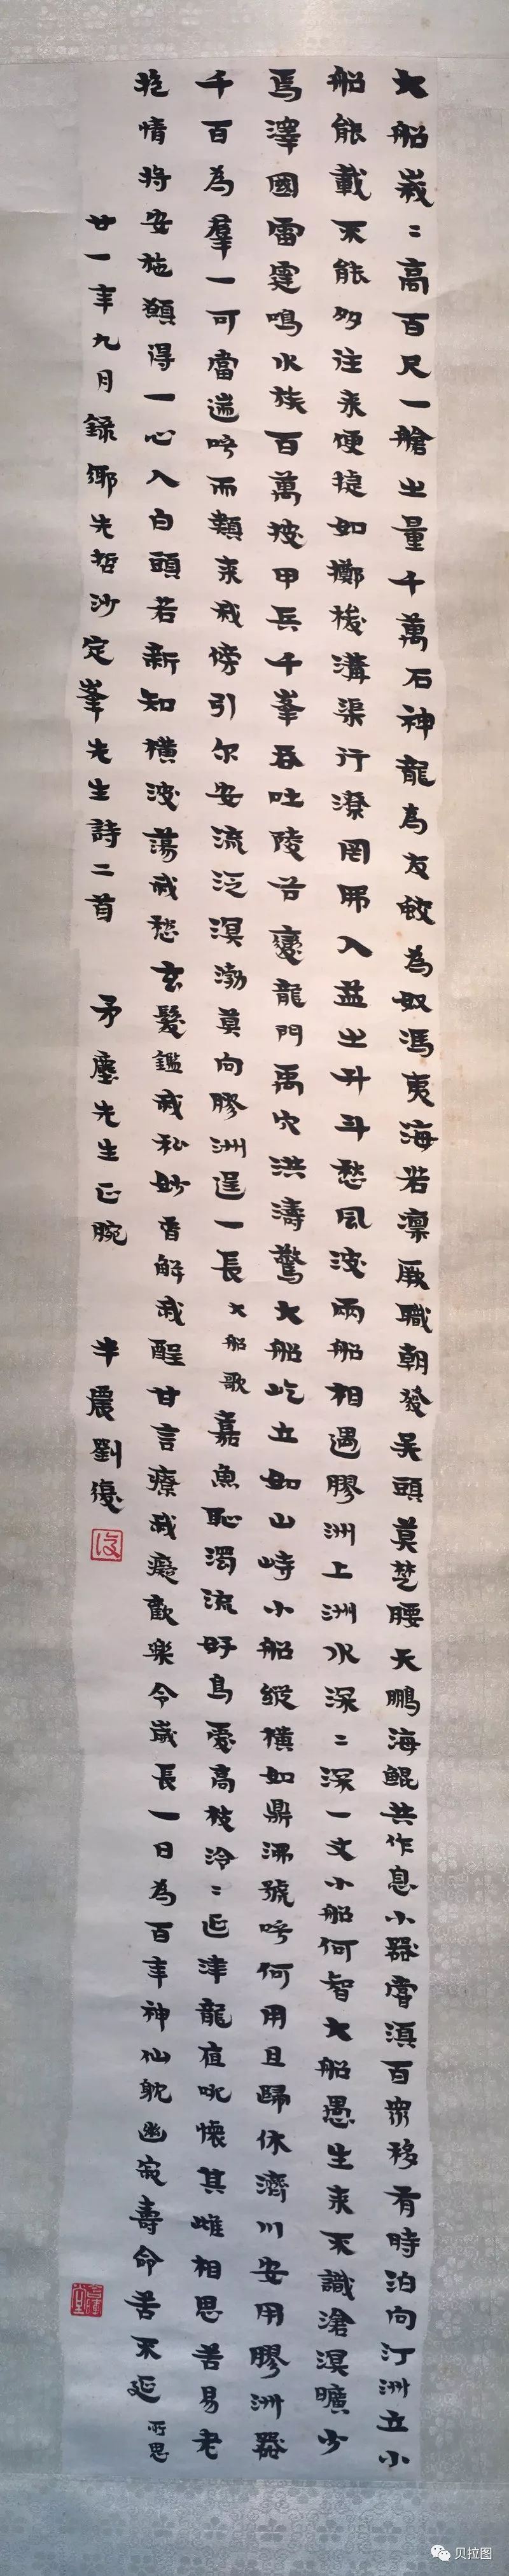 大船峩〻高百尺一艙之量千萬石神龍為友蛟為奴馮夷海若凜厥職朝發吳頭莫楚腰天鵬海鯤共作息小器嘗滇百貨移有時泊向汀洲立小
船能載不能多往来便捷如擲梭溝渠行潦罔弗入益之升斗愁風波兩船相遇膠洲上洲水深〻深一丈小船何智大船愚生来不識滄溟曠少
焉澤國雷霆鳴水族百萬披甲兵千峯吞吐陵谷變龍門禹穴洪濤驚大船屹立如山峙小船縱橫如鼎沸號呼何用且歸休濟川安用膠洲器
千百為羣一可當遄呼而類来我傍引尔安流泛溟渤莫向膠洲逞一長大船歌嘉魚恥濁流好鳥愛高枝泠〻延津龍夜吼懷其雌相思苦易老
挖情將安施願得一心入白頭若新知橫波蕩我愁玄髮鑑我私妙香解我酲甘言療我癡歡樂令歲長一日為百年神仙躭幽寂壽命苦不延所思
廿一年九月錄鄉先哲沙定峯先生詩二首 矛塵先生正腕 半農劉復
復
貝拉图